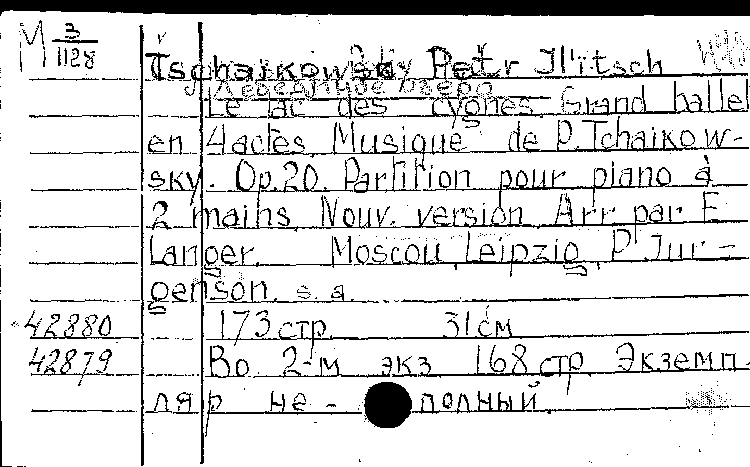 М 3/1128
Tschaikowsky Petr Il'itsch
Лебединое озеро
Le lac des cygnes Grand ballet
en 4 actes. Musique de P. Tchaikow-
sky. Op. 20. Partition pour piano à
2 mains. Nouv. version Arr par E
Langer. Moscou, Leipzig, P. Jur-
genson, s. a.
42880 173 стр. 31 см
42879 Во 2-м экз 168 стр. Экземп-
ляр не- полный.